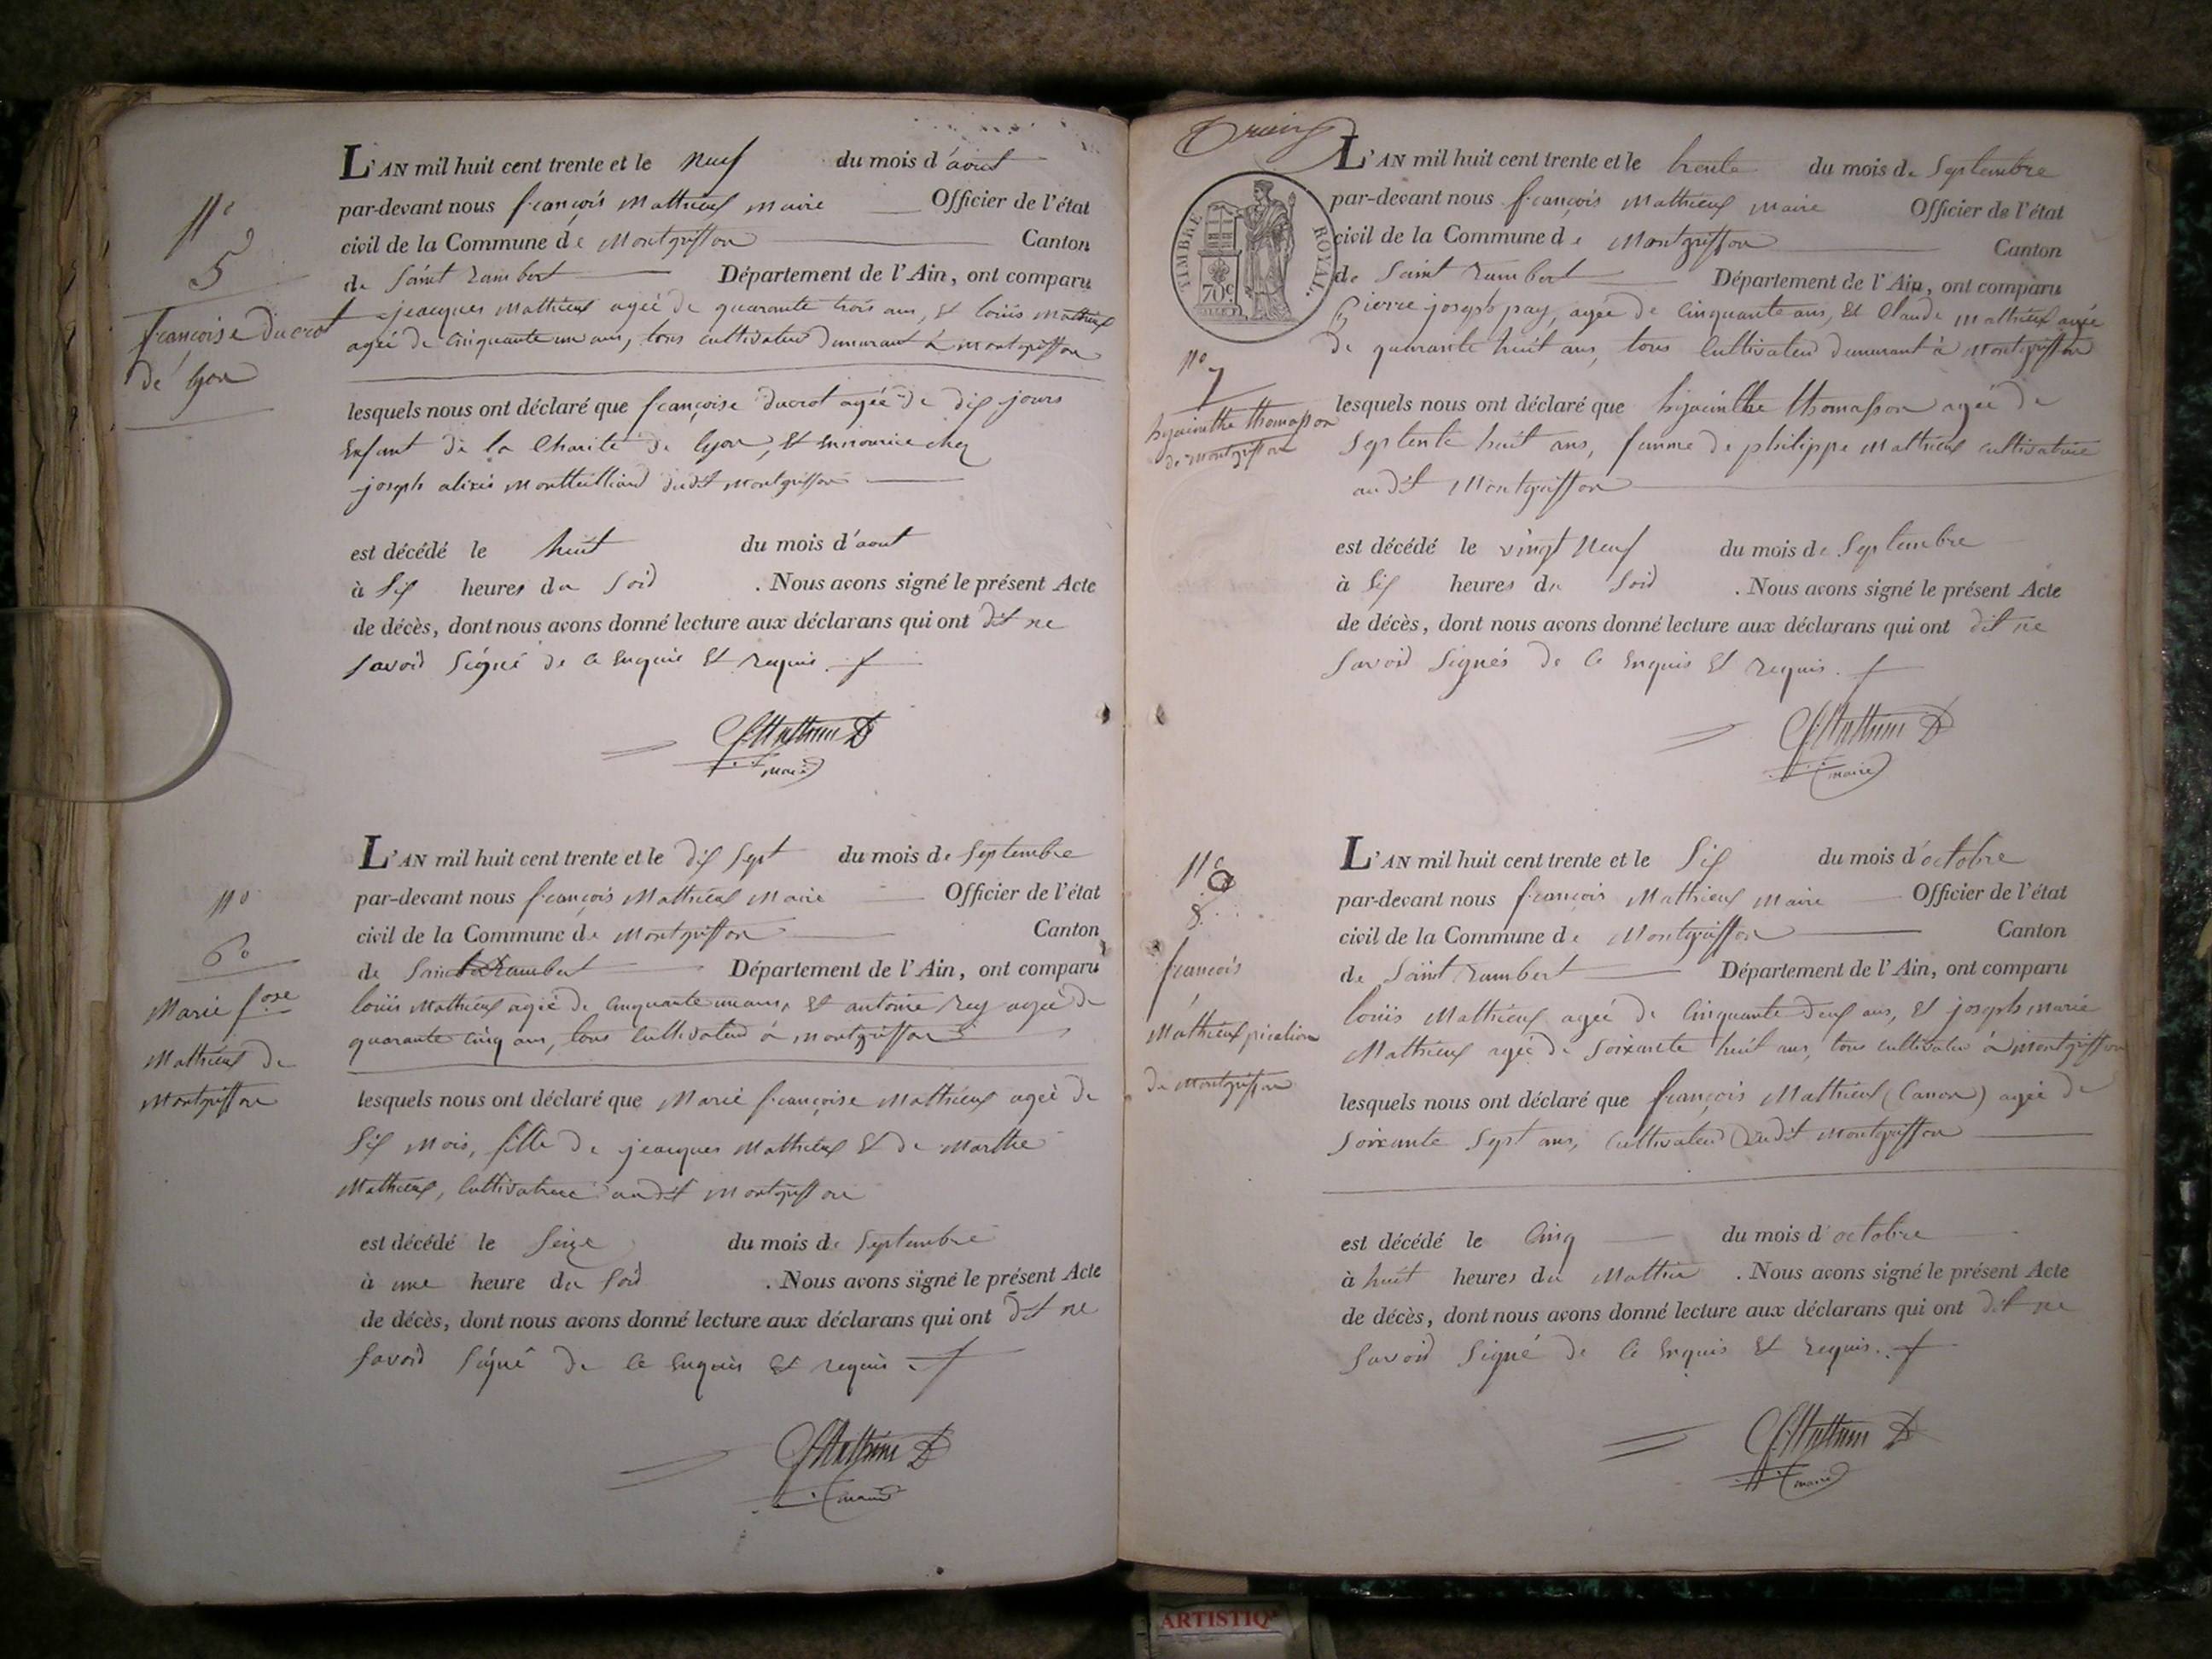 N°
5
françoise ducrot
de lyon
L'AN mil huit cent trente et le neuf du mois d'aout
par-devant nous françois Mathieux maire Officier de l'état
civil de la Commune de Montgriffon Canton
de Saint rambert Département de l'Ain, ont comparu
jeacques Mathieux agée de quarante trois ans, et louis Mathieux
agée de cinquante un ans, tous cultivateur demeurant à montgriffon
lesquels nous ont déclaré que françoise ducrot agée de dix jours
Enfant de la Charité de lyon, et en nourice chez
joseph alixis Montteilliard dudit Montgriffon
est décédé le huit du mois d'aout
à Six heures du Soir . Nous avons signé le présent Acte
de décès, dont nous avons donné lecture aux déclarans qui ont dit ne
savoir Signé de ce Enquis Et requis.
f. Mathieux
maire
N°
6°
Marie fose
Mathieux de
Montgriffon
L'AN mil huit cent trente et le dix Sept du mois de Septembre
par-devant nous françois Mathieux Maire Officier de l'état
civil de la Commune de Montgriffon Canton
de Saint Rambert Département de l'Ain, ont comparu
louis Mathieux agée de cinquante un ans, et antoine rey agée de
quarante cinq ans, tous cultivateur à montgriffon
lesquels nous ont déclaré que Marie françoise Mathieux agée de
Six Mois, fille de jeacques Mathieux Et de Marthe
Mathieux, cultivatrice audit Montgriffon
est décédé le Seize du mois de Septembre
à une heure du Soir . Nous avons signé le présent Acte
de décès, dont nous avons donné lecture aux déclarans qui ont dit ne
Savoir Signé de ce Enquis Et requis.
f. Mathieux
maire
TIMBRE ROYAL.
70c.
N°
7
hyacinthe thomasson
de montgriffon
L'AN mil huit cent trente et le trente du mois de Septembre
par-devant nous françois Mathieux maire Officier de l'état
civil de la Commune de Montgriffon Canton
de Saint rambert Département de l'Ain, ont comparu
Pierre joseph pay, agée de Cinquante ans, Et Claude Mathieux agée
de quarante huit ans, tous Cultivateur demeurant à Montgriffon
lesquels nous ont déclaré que hyacinthe thomasson agée de
Septente huit ans, femme de philippe Mathieux cultivatrice
audit Montgriffon
est décédé le vingt Neuf du mois de Septembre
à Six heures du Soir . Nous avons signé le présent Acte
de décès, dont nous avons donné lecture aux déclarans qui ont dit ne
Savoir Signés de ce Enquis Et requis.
f. Mathieux
maire
N°
8
françois
Mathieux
de Montgriffon
L'AN mil huit cent trente et le Six du mois d'octobre
par-devant nous françois Mathieux Maire Officier de l'état
civil de la Commune de Montgriffon Canton
de Saint rambert Département de l'Ain, ont comparu
louis Mathieux agée de Cinquante deux ans, Et joseph marie
Mathieux agée de Soixante huit ans, tous cultivateur à Montgriffon
lesquels nous ont déclaré que françois Mathieux (Canon) agée de
Soixante Sept ans, Cultivateur dudit Montgriffon
est décédé le Cinq du mois d'octobre
à huit heures du Mattin . Nous avons signé le présent Acte
de décès, dont nous avons donné lecture aux déclarans qui ont dit ne
Savoir Signé de ce Enquis Et requis.
f. Mathieux
maire
ARTISTIQ